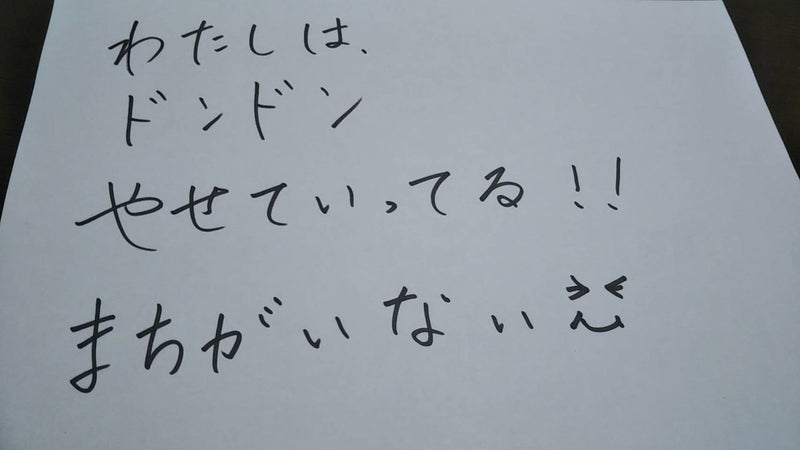 わたしは、
ドンドン
やせていってる!!
まちがいない